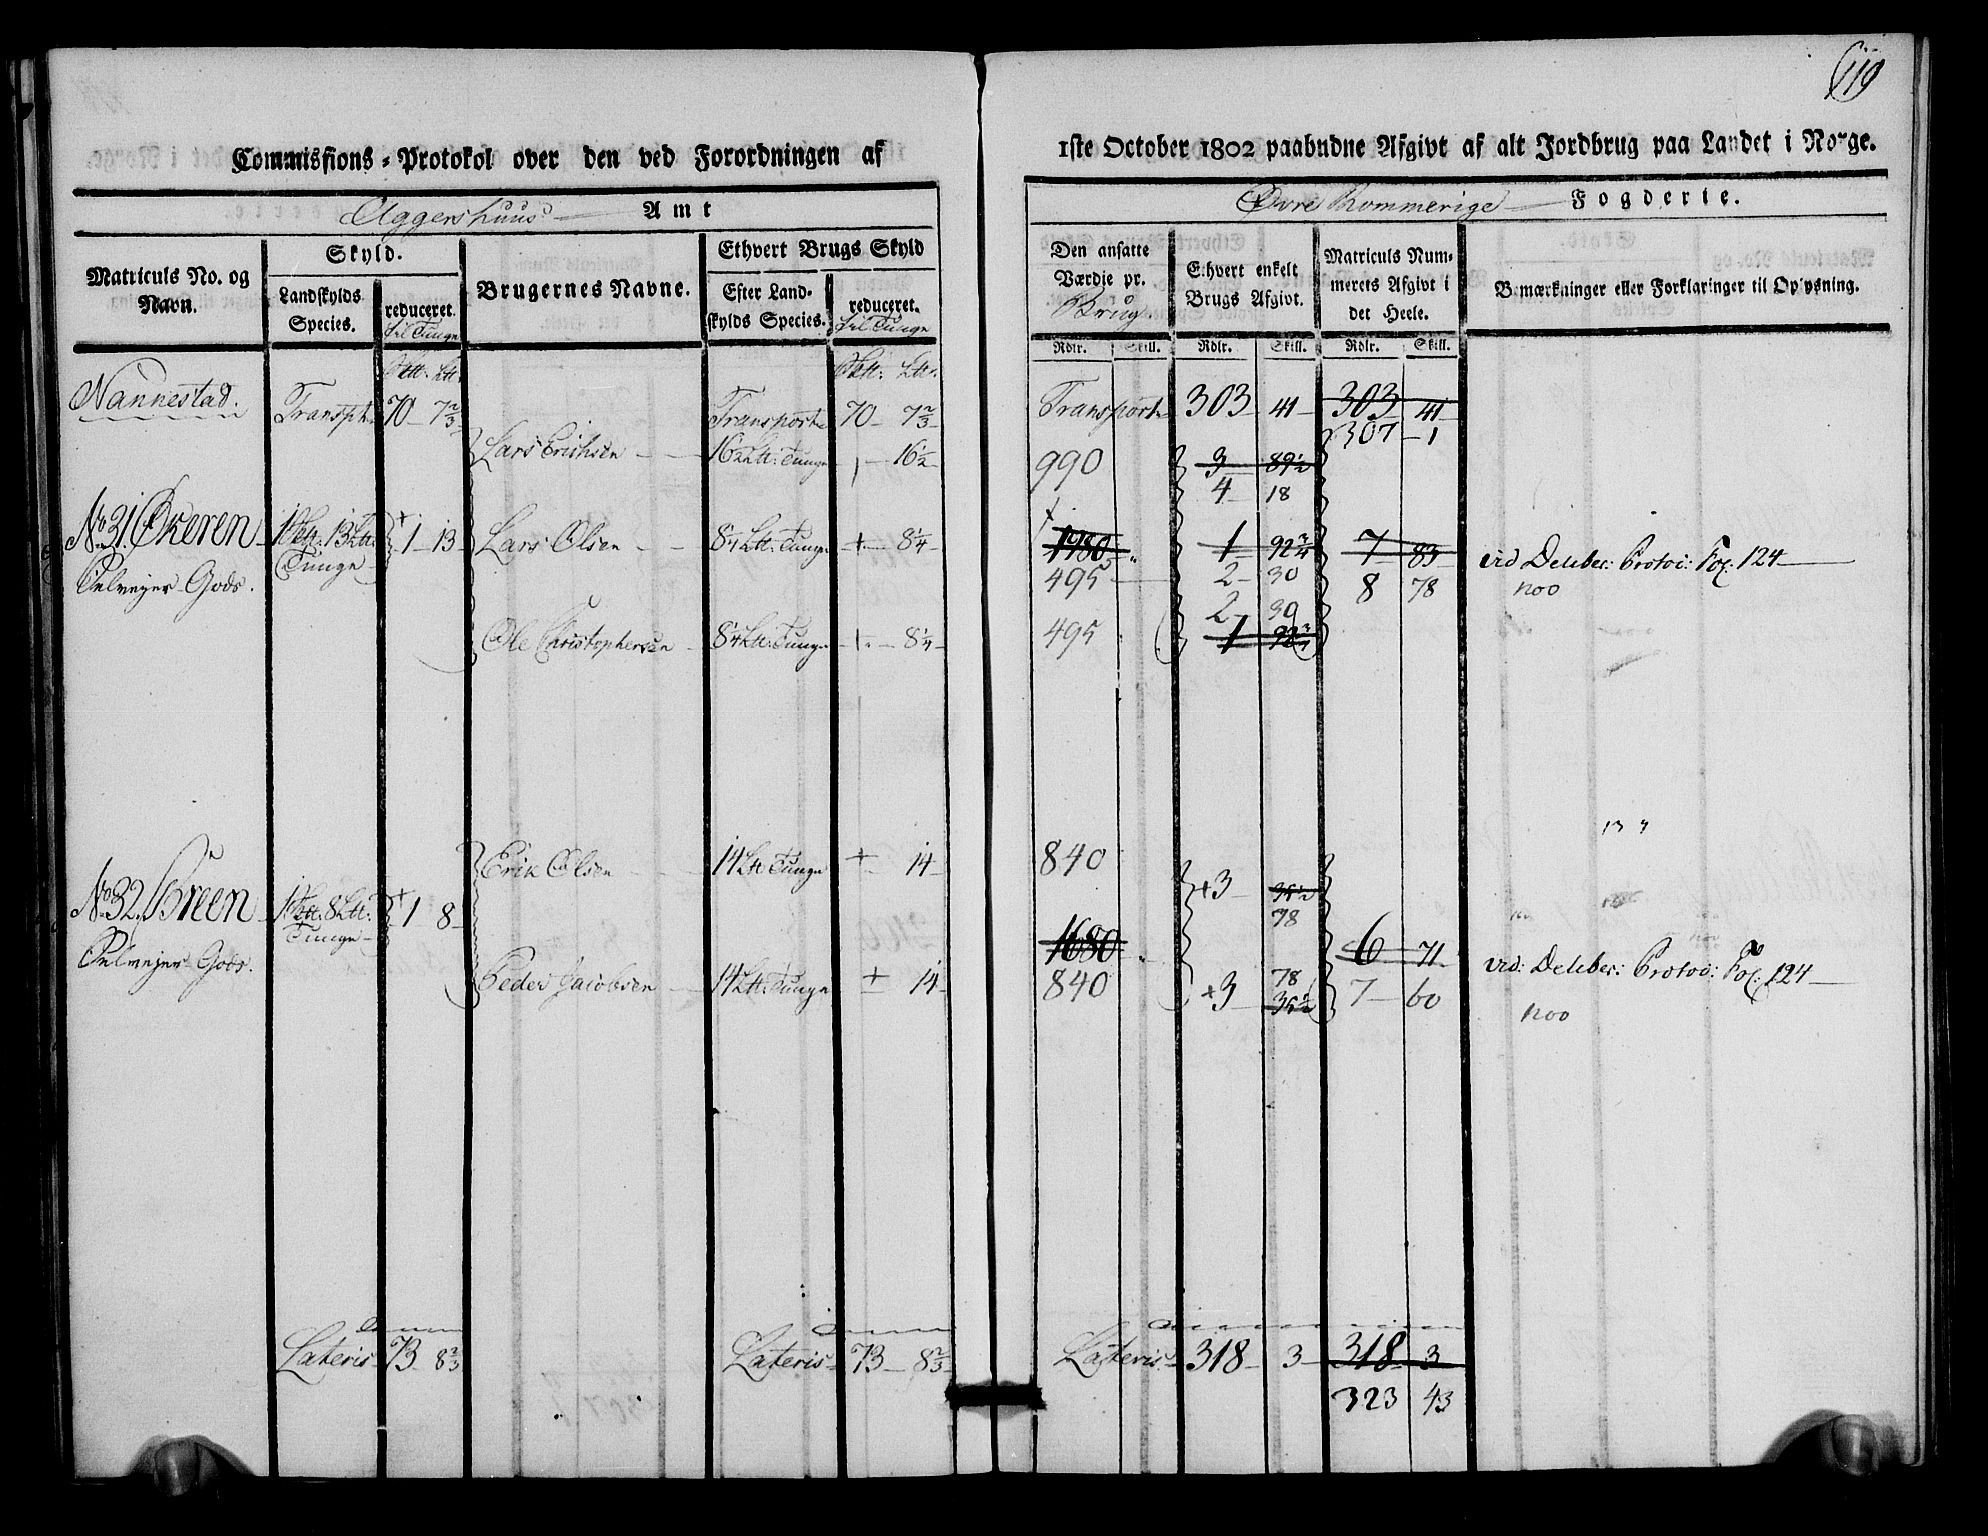 119
Commissions-Protokol over den ved Forordningen af
1ste October 1802 paabudne Afgivt af alt Jordbrug paa Landet i Norge.
Aggershuus Amt
Øvre Rommerige Fogderie.
Matriculs No. og Navn.
Skyld.
Landskylds Species.
reduceret til Tunge
Brugernes Navne.
Ethvert Brugs Skyld
Efter Landskylds Species.
reduceret. til Tunge
Den ansatte Værdie pr. Brug.
Ethvert enkelt Brugs Afgivt.
Matriculs Nummerets Afgivt i det Heele.
Bemærkninger eller Forklaringer til Oplysning.
Rdlr. Skill. Rdlr. Skill. Rdlr. Skill.
Nannestad. Transpt 70 - 7 2/3 Transport 70 - 7 2/3 Transport 303 41 303 41
307 - 1
Lars Erichsen 16 1/2 Ltt: Tunge 16 1/2 990 3 89 1/2
4 18
No 31. Økeren 13 Ltt: Tunge 1 - 13 Lars Olsen 8 1/4 Ltt: Tunge 8 1/4 1980 1 92 3/4 7 83 vid Deliber: Protoc: Fol: 124
Selvejer Gods. 495 2 30 8 78
2 30
Ole Christophersen 8 1/4 Ltt: Tunge 8 1/4 495 1 92 3/4
Erik Olsen 14 Ltt Tunge 14 840
3 35 1/2
78
No 32. Breen 8 Ltt: Tunge 1 8
1680 6 71
Selvejer Gods. Peder Jacobsen 14 Ltt: Tunge 14 840 3 78 7 60 vid: Deliber: Protoc: Fol: 124
35 1/2
Lateris 73 8 2/3 Lateris 73 - 8 2/3 Lateris 318 3 318 3
323 43